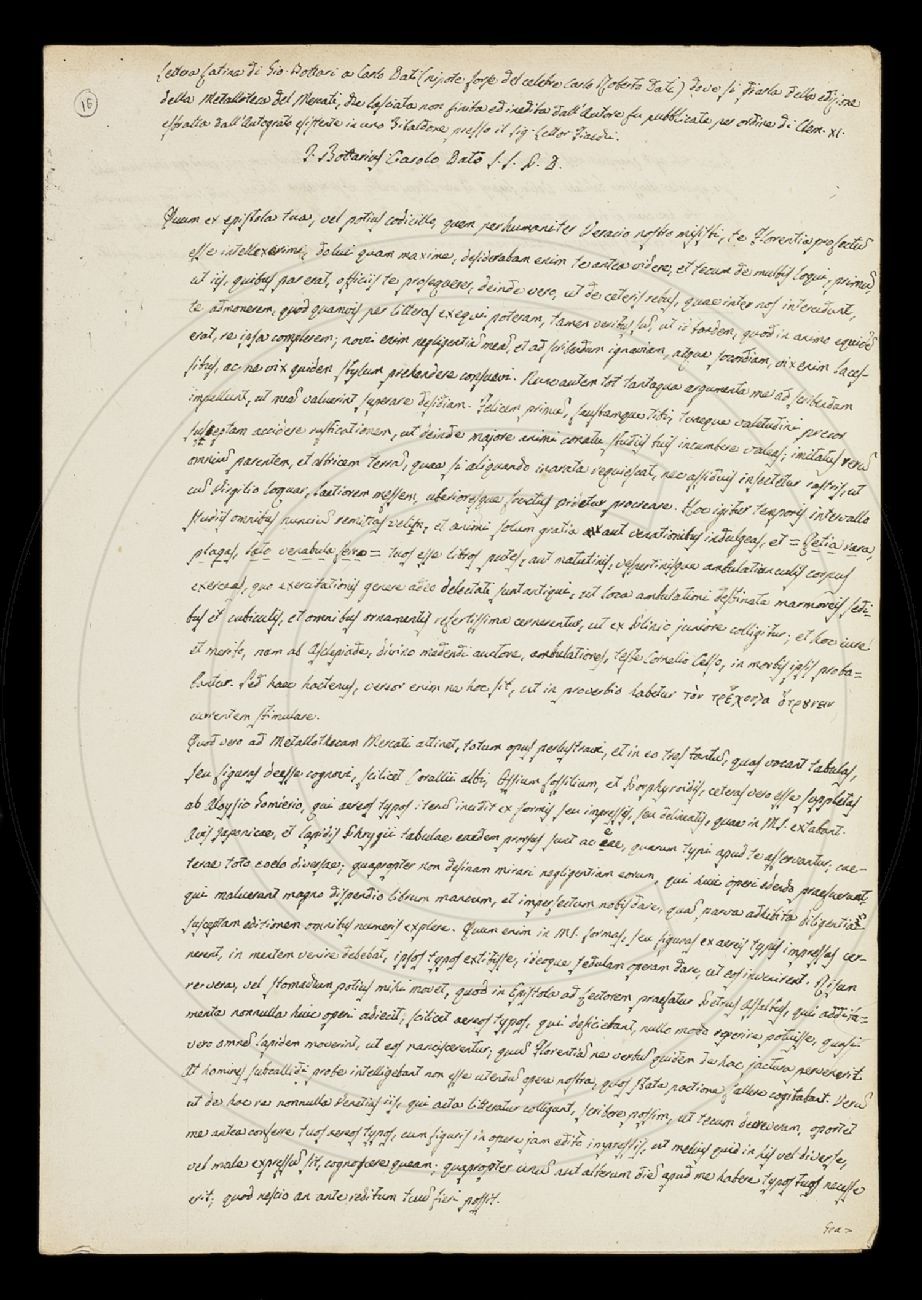 16
Lettera latina di Gio: Bottari a Carlo Dati (nipote forse del celebre Carlo Roberto Dati) dove si parla della edizione
della Metalloteca del Mercati, che lasciata non finita ed inedita dall'Autore fu pubblicata per ordine di Clem. XI.
estratta dall'Autografo esistente in uno Zibaldone presso il Sig. Lettor
J. Bottarius Carolo Dato S. P. D.
Quum ex epistola tua, vel potius codicillo, quem perhumaniter Veracio nostro misisti, te Florentia profectũ
esse intellexerim, dolui quam maxime, desiderabam enim te antea videre, et tecum de multis loqui, primũ,
ut iis, quibus par erat, officiis te prosequerer, deinde vero, ut de ceteris rebus, quae inter nos intercedunt,
te admonerem, quod quamvis per litteras exequi poteram, tamen veritus sũ, ut id tandem, quod in animo
erat, re ipsa complerem; novi enim negligentiã meã, et ad scribendum ignaviam, atque socordiam, vix enim laces-
situs, ac ne vix quidem stylum prehendere consuevi. Nunc autem tot tantaque argumenta me ad scribẽdum
impellunt, ut meã valuerint superare desidiam. Felicem primũ, faustamque tibi, tuaeque valetudini precor
susceptam accidere rusticationem, ut deinde majore animi conatu studiis tuis incumbere valeas; imitatus verũ
omniũ parentem, et altricem terrã, quae si aliquando inarata requiescat, nec assiduis insectetur rastris, ut
cũ Virgilio loquar, laetiorem messem, uberioresque fructus videtur procreare. Hoc igitur temporis intervallo
studiis omnibus nunciũ remittas velim, et animi solum gratia aut venationibus indulgeas, et = Retia rara,
plagas, lato venabula ferro = tuos esse libros putes, aut matutinis, vespertinisque ambulatiunculis corpus
exerceas, quo exercitationis genere adeo delectati sunt antiqui, ut loca ambulationi destinata marmoreis sedi-
bus et cubiculis, et omnibus ornamentis refertissima cernerentur, ut ex Plinio juniore colligitur; et hoc iure
et merito, nam ab Asclepiade, divino medendi auctore, ambulationes, teste Cornelio Celso, in morbis ipsis proba=
bantur. Sed haec hactenus, vereor enim ne hoc sit, ut in proverbio habetur τὸν τρέχοντα ὀτρύνειν
currentem stimulare.
Quod vero ad Metallothecam Mercati attinet, totum opus perlustravi, et in eo tres tantũ, quas vocant tabulas,
seu figuras deesse cognovi, scilicet Corallii albi, Ossium fossilium, et Porphyroidis, ceteras vero esse suppletas
ab Aloysio Gomierio, qui aereos typos iterũ incidit ex formis seu impressis, seu delineatis, quae in MS. extabant.
Avis Japonicae, et lapidis Phrygii tabulae eaedem prorsus sunt ac eae, quarum typi apud te asservantur; cae-
terae toto coelo diversae; quapropter non desinam mirari negligentiam eorum, qui huic operi edendo praefuerunt,
qui maluerunt magno dispendio librum mancum, et imperfectum nobis dare, quã parva adhibita diligentia
susceptam editionem omnibus numeris explere. Quum enim in MS. formas, seu figuras ex aereis typis impressas cer-
nerent, in mentem venire debebat, ipsos typos extitisse, ideoque sedulam operam dare, ut eos invenirent. Risum
rerverã, vel stomachum potius mihi movet, quod in Epistola ad Lectorem praefatur Petrus Assaltus, qui additã=
menta nonnulla huic operi adiecit; scilicet aereos typos, qui deficiebant, nullo modo reperire potuisse, quasi
vero omnẽ lapidem moverint, ut eos nanciscerentur; quũ Florentiã ne verbũ quidem de hac jactura pervenerit.
At homines subcallidi probe intelligebant non esse utendũ opera nostra, quos stata pactione fallere cogitabant. Verũ
ut de hac re nonnulla Venetias iis, qui acta litteratur colligunt, scribere possim, ut tecum decreveram, oportet
me antea conferre tuos aereos typos, cum figuris in opere jam edito impressis, ut melius quid in his vel diverse,
vel male expressũ sit, cognoscere queam; quapropter unũ aut alterum diẽ apud me habere typos tuos necesse
erit; quod nescio an ante reditum tuũ fieri possit.
Gra=